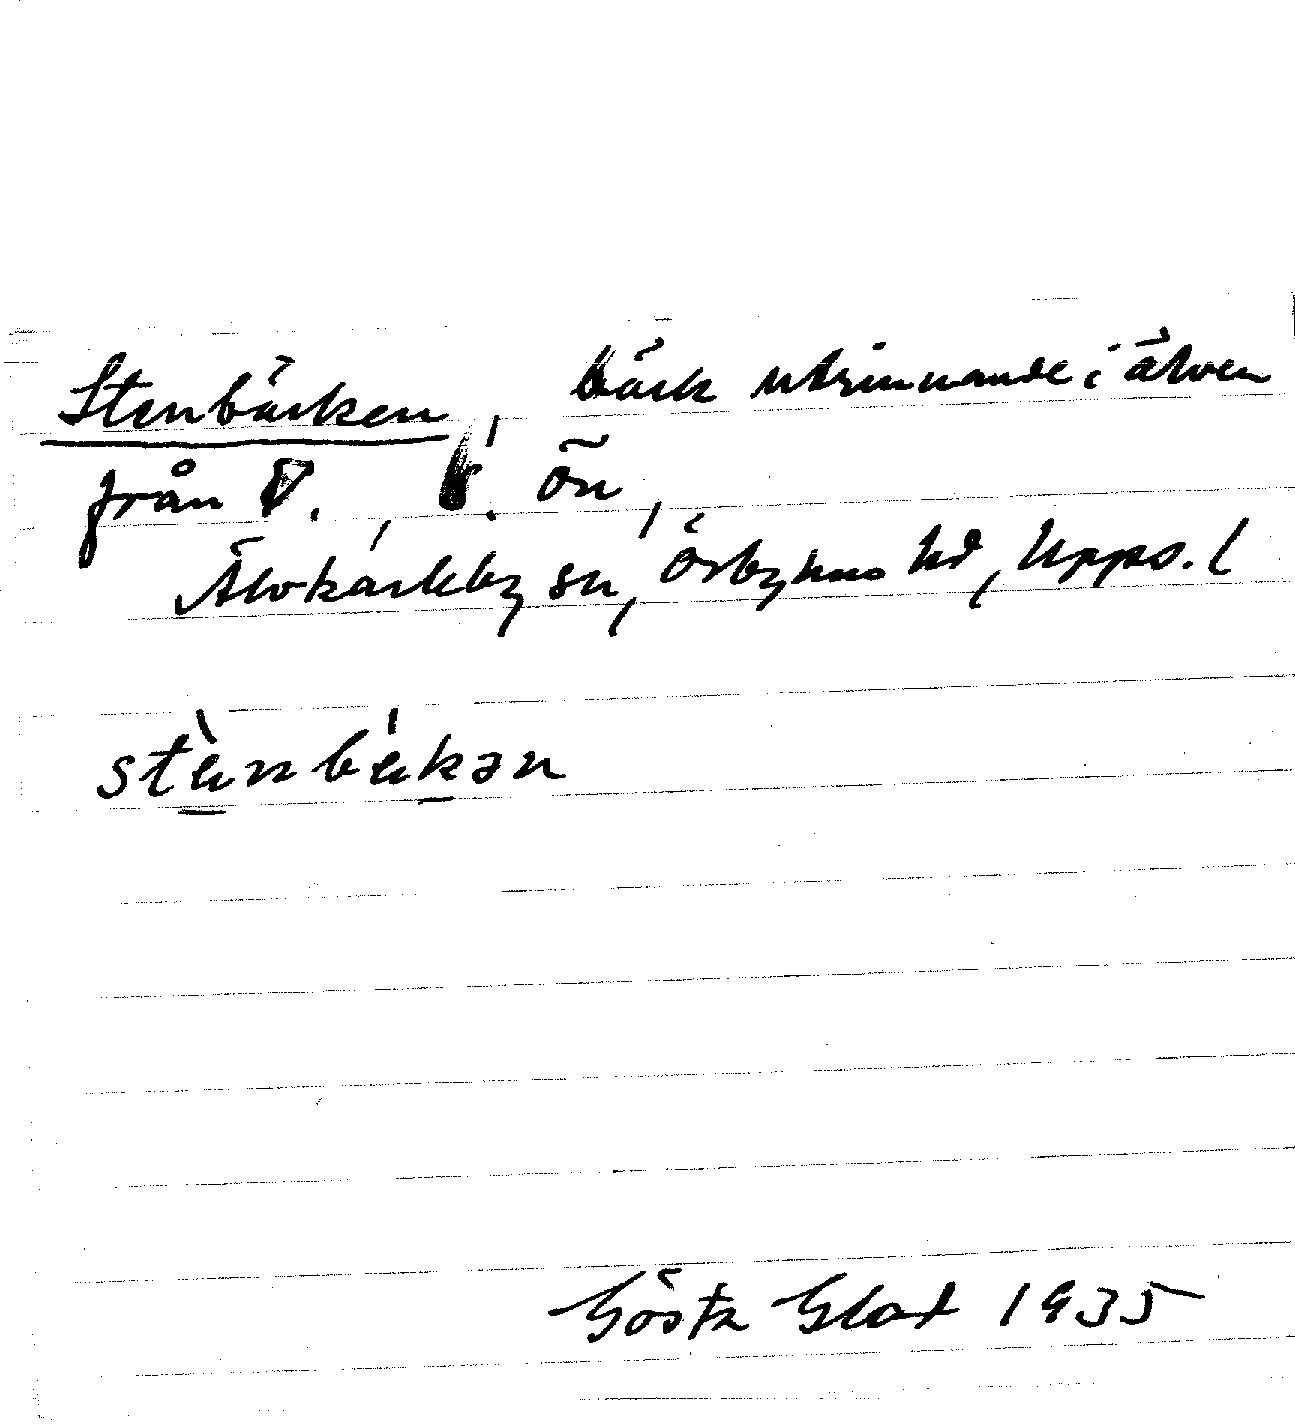 Stenbäcken, bäck utrinnande i älven
från V., ö. ön,
Älvkarleby sn, Örbyhus hd, Upps. l
stènbékən
Gösta Glad 1935